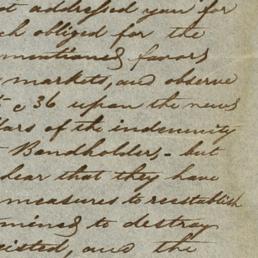 t addressed you for
ch obliged for the
mentioned favors
markets, and observe
c 36 upon the news
lars of the indemnity
t Bondholders - but
clear that they have
measures to reestablish
mined to destroy
existed, and the